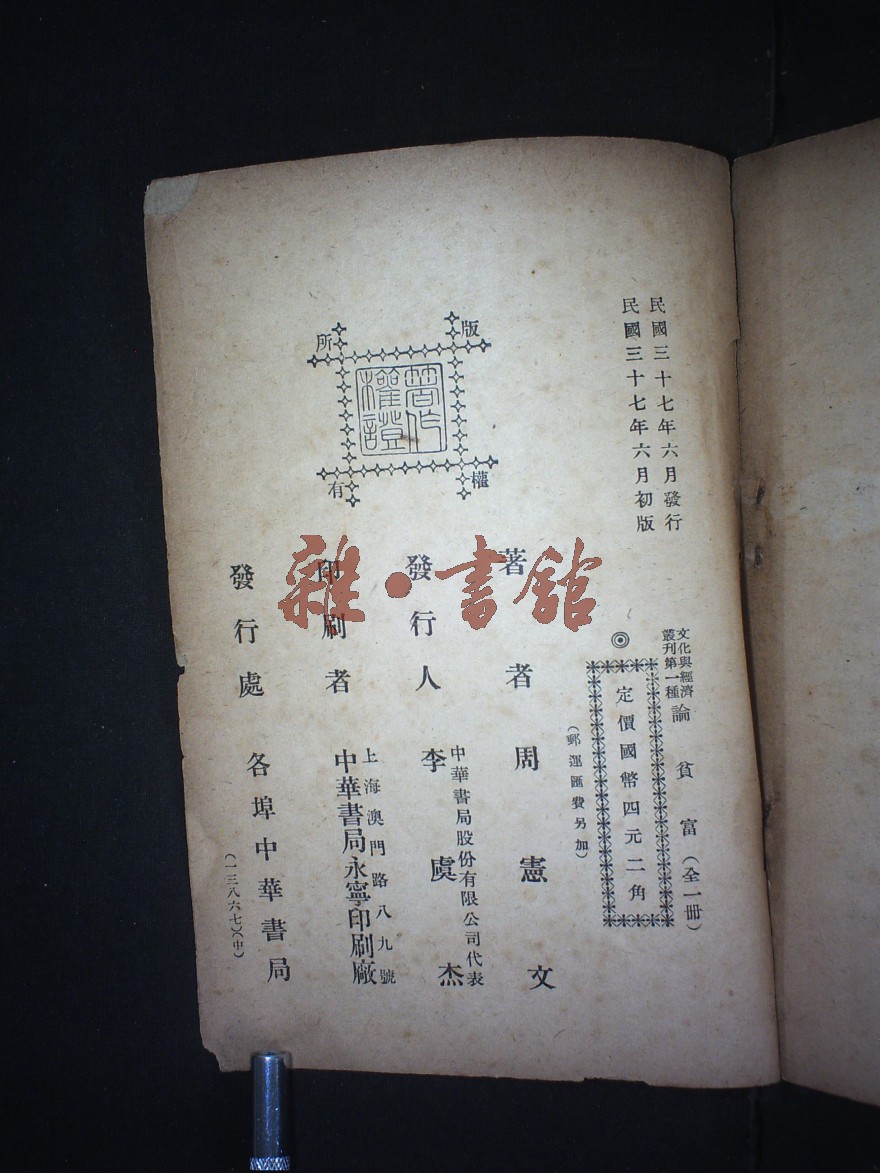 民國三十七年六月發行
民國三十七年六月初版
版權所有
著作權證
文化與經濟
叢刊第一種
論貧富(全一冊)
◎
定價國幣四元二角
(郵運匯費另加)
著者 周憲文
發行人 李虞杰
中華書局股份有限公司代表
印刷者
上海澳門路八九號
中華書局永寧印刷廠
發行處 各埠中華書局
(一三八六七)(中)
雜·書館